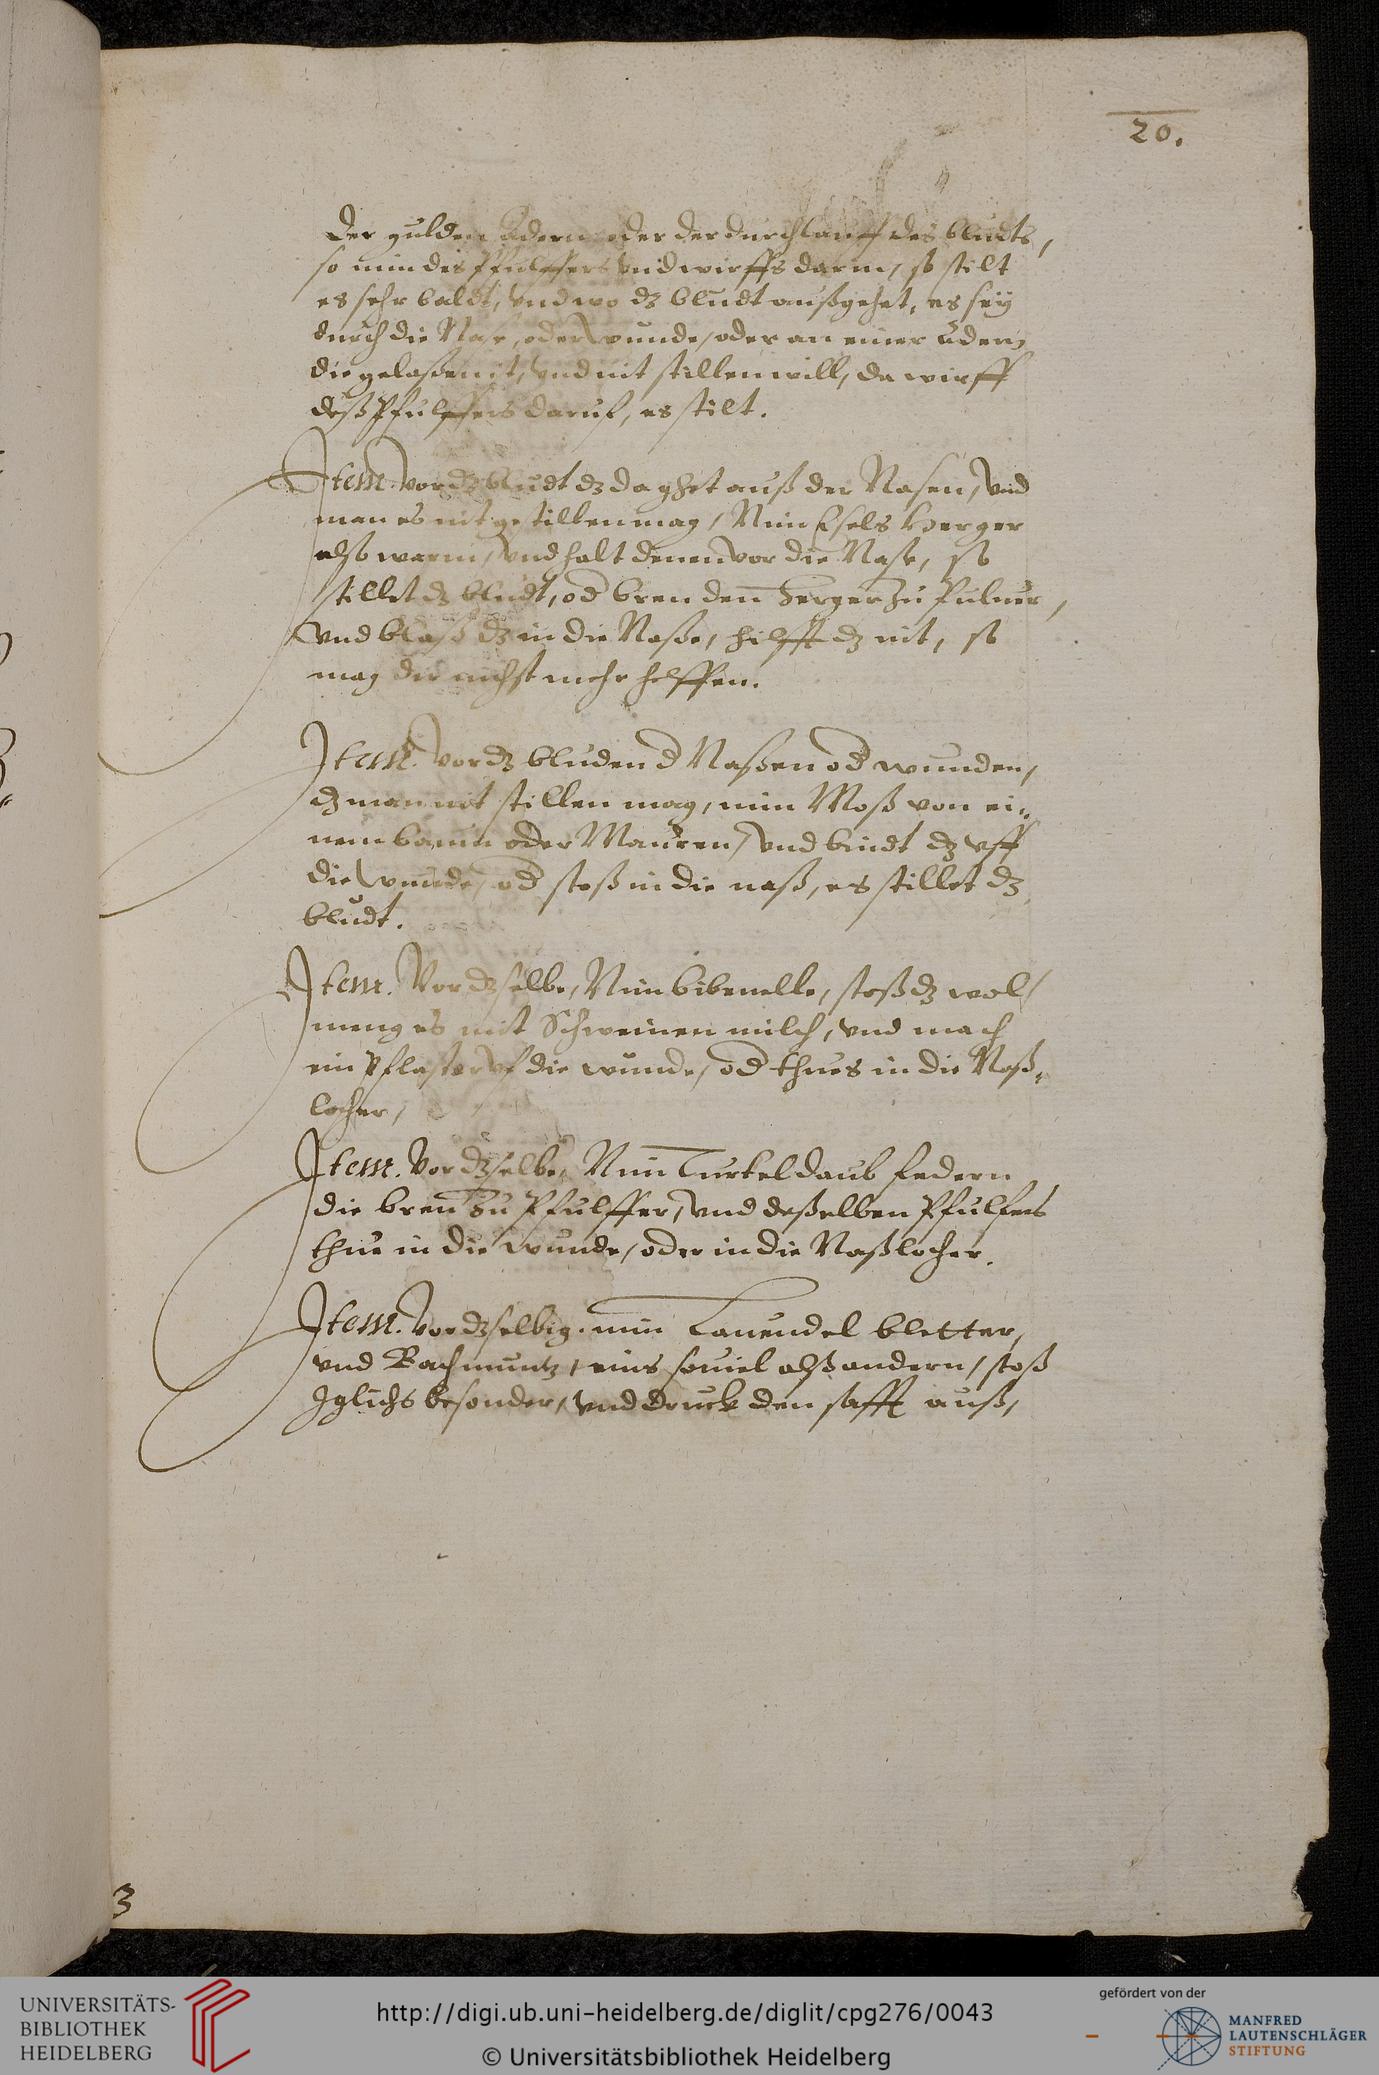 20.
der gulden Adern oder der durchlauff des bludts,
so nim des Pfulffers vnd wirffs darin, so stilt
es sehr baldt, vnd wo dz bludt außgehet, es sey
durch die Nase, oder wunde, oder an einer Adern
die gelaßen ist, vnd nit stillen will, da wirff
deß Pfulffers daruf, es stilt.
Item. vor dz bludt dz da ghet auß der Nasen, vnd
man es nit gestillen mag, Nim Esels
also warm, vnd halt denen vor die Nase, so
stillet dz bludt, od bren den zu Puluer,
vnd blaß dz in die Naße, hilfft dz nit, so
mag dir nichst mehr helffen.
Item. vor dz bluden d Naßen od wunden,
dz man nit stillen mag, nim Moß von ei-
nem baum oder Mauren, vnd bindt dz vff
die wunde, od stoß in die naß, es stillet dz
bludt.
Item. Vor dzselbe, Nim bibenelle, stoß dz wol,
meng es mit Schweinen milch, vnd mach
ein Pflaster vf die wunde, od thues in die Naß-
locher,
Item. Vor dzselbe, Nim Turkeldaub federn
die bren zu Pfulffer, vnd deßelben Pfulfers
thue in die wunde, oder in die Naßlocher.
Item. vor dzselbig. nim Lauendel bletter,
vnd Bachmuntz, eins souiel alß andern, stoß
Iglichs besonder, vnd druck den safft auß,
3
UNIVERSITÄTS-
BIBLIOTHEK
HEIDELBERG
http://digi.ub.uni-heidelberg.de/diglit/cpg276/0043
© Universitätsbibliothek Heidelberg
gefördert von der
MANFRED
LAUTENSCHLÄGER
STIFTUNG